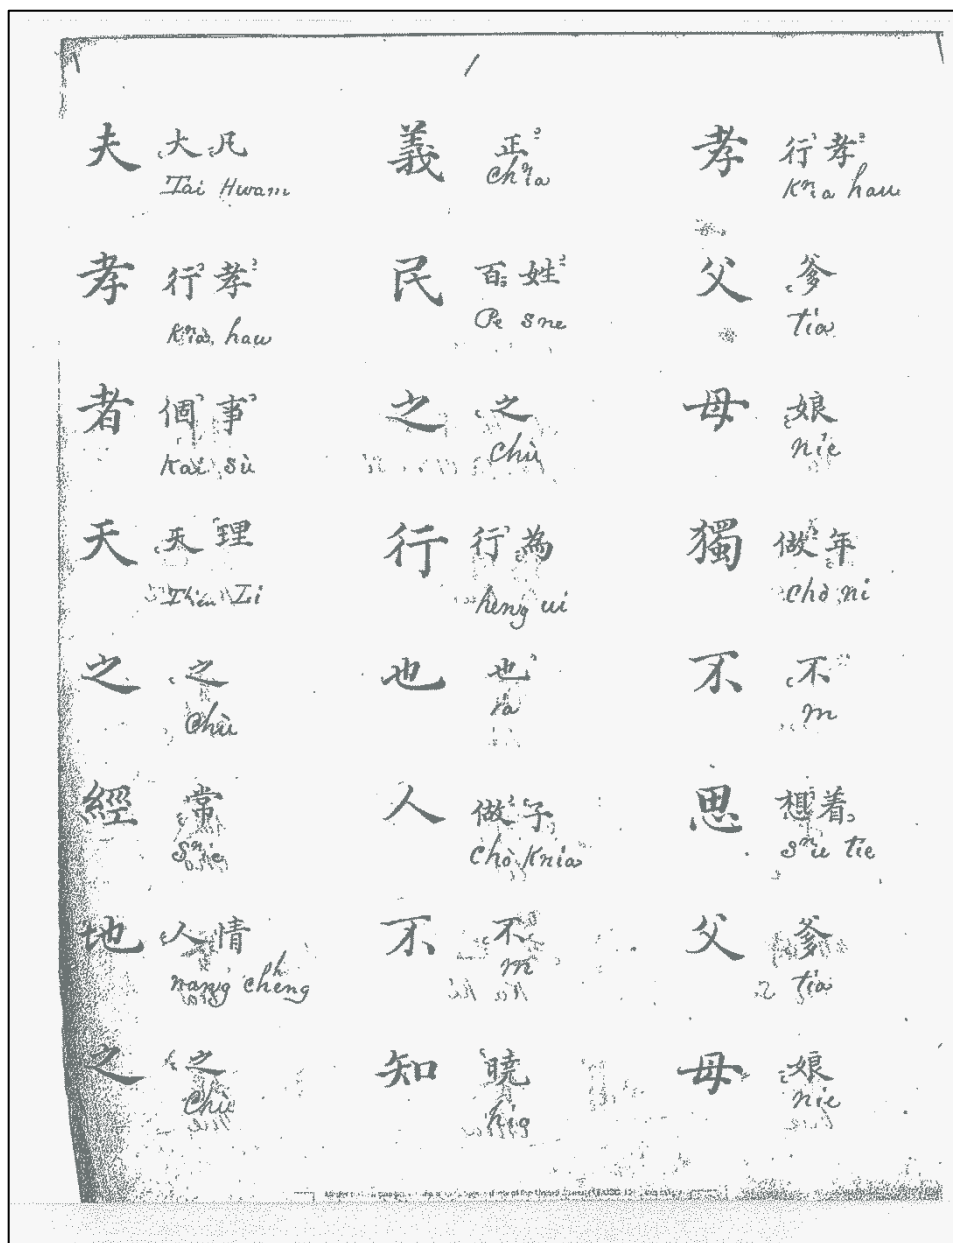 夫 大凡
Tai Hwam
孝 行孝
Knia hau
者 個事
Kai sù
天 天理
Thien Li
之 之
Chù
經 常
snie
地 人情
nang chheng
之 之
Chù
義 正
Chnia
民 百姓
Pe sne
之 之
Chù
行 行為
heng ui
也 也
ia
人 做子
Chò Knia
不 不
m
知 曉
hio
孝 行孝
Knia hau
父 爹
tia
母 娘
nie
獨 做年
Chò ni
不 不
m
思 想着
snie tie
父 爹
tia
母 娘
nie